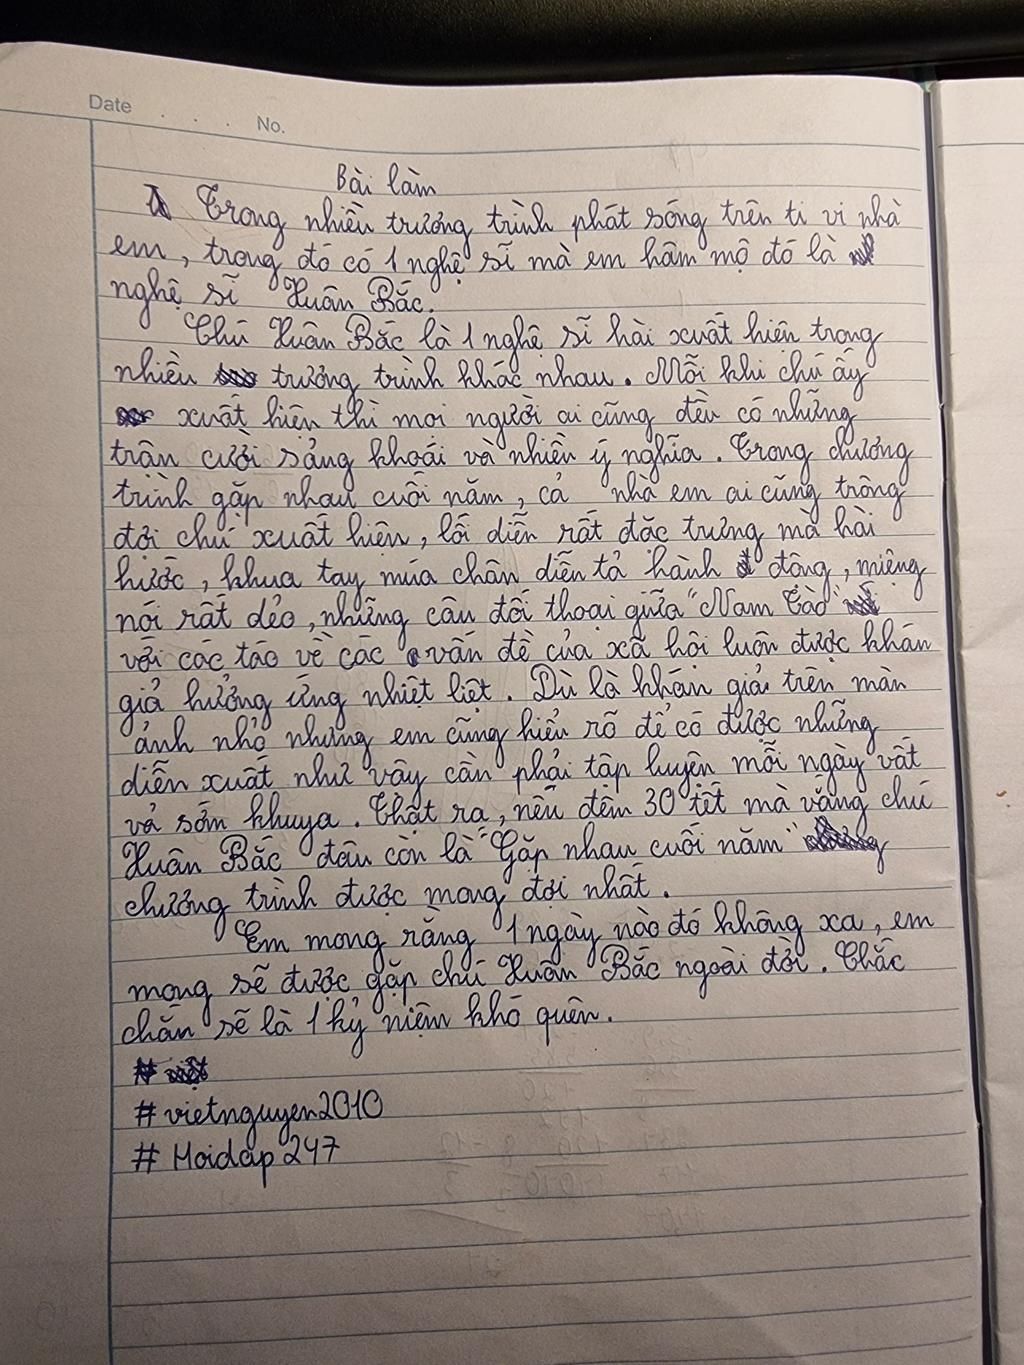 Date . . . No.
Bài làm
Trong nhiều trương trình phát sóng trên ti vi nhà
em, trong đó có 1 nghệ sĩ mà em hâm mộ đó là
nghệ sĩ Xuân Bắc.
Chú Xuân Bắc là 1 nghệ sĩ hài xuất hiện trong
nhiều trương trình khác nhau. Mỗi khi chú ấy
xuất hiện thì mọi người ai cũng đều có những
trận cười sảng khoái và nhiều ý nghĩa. Trong chương
trình gặp nhau cuối năm, cả nhà em ai cũng trông
đợi chú xuất hiện, lối diễn rất đặc trưng mà hài
hước, khua tay múa chân diễn tả hành động, miệng
nói rất dẻo, những câu đối thoại giữa "Nam Tào"
với các táo về các vấn đề của xã hội luôn được khán
giả hưởng ứng nhiệt liệt. Dù là khán giả trên màn
ảnh nhỏ nhưng em cũng hiểu rõ để có được những
diễn xuất như vậy cần phải tập luyện mỗi ngày vất
vả sớm khuya. Thật ra, nếu đêm 30 tết mà vắng chú
Xuân Bắc đâu còn là "Gặp nhau cuối năm"
chương trình được mong đợi nhất.
Em mong rằng 1 ngày nào đó không xa, em
mong sẽ được gặp chú Xuân Bắc ngoài đời. Chắc
chắn sẽ là 1 kỷ niệm khó quên.
#
#vietnguyen2010
# Hoidap 247